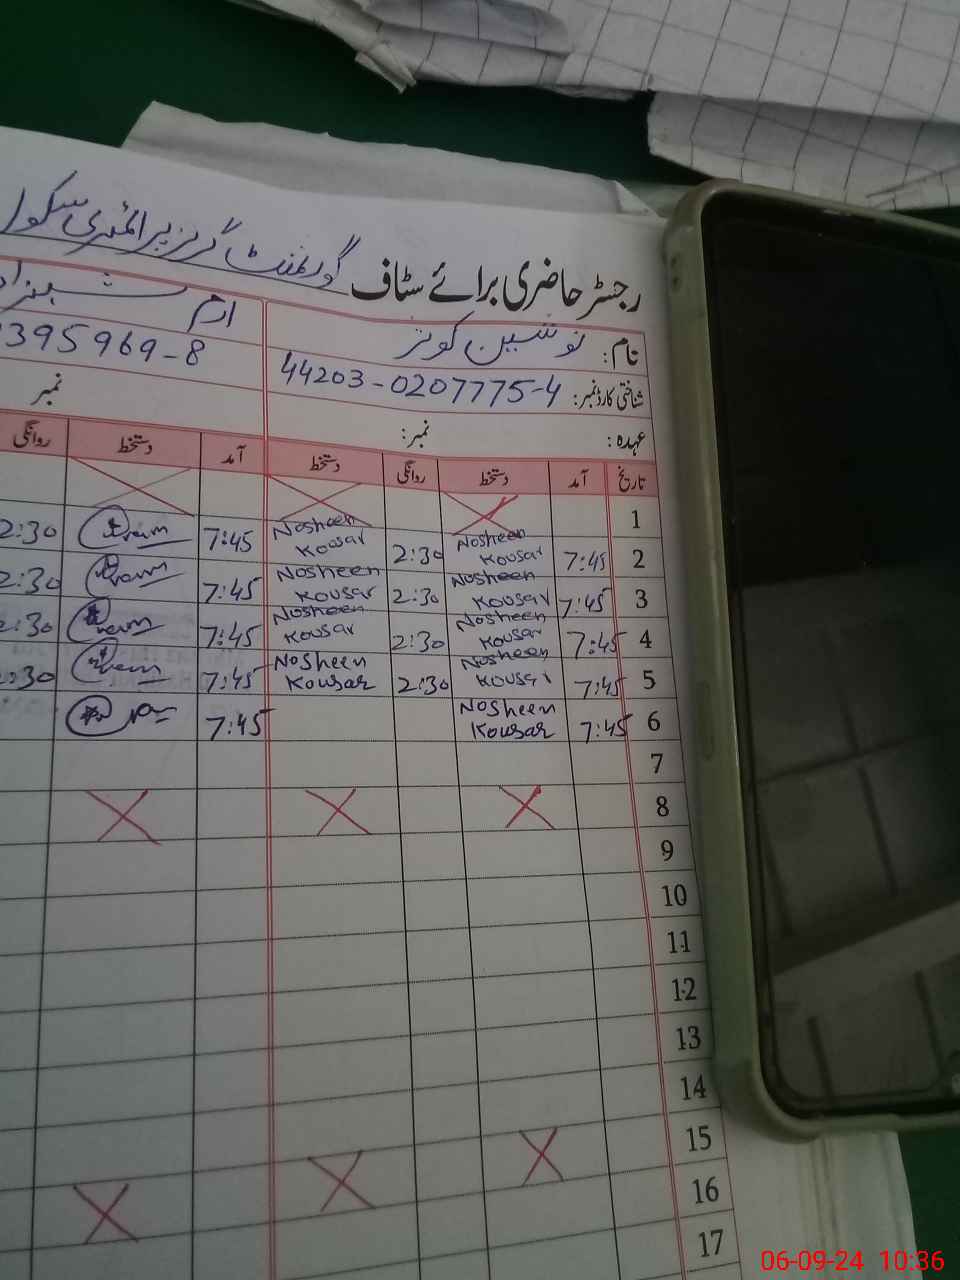 رجسٹر حاضری برائے سٹاف گورنمنٹ گرلز پرائمری سکول
نام: نوشین کوثر ارم
شناختی کارڈ نمبر: 44203-0207775-4 395969-8
عہدہ: نمبر: نمبر
تاریخ آمد دستخط روانگی دستخط آمد دستخط روانگی
1
2 7:45 Nosheen Kousar 2:30 Nosheen Kousar 7:45 Iram 2:30
3 7:45 Nosheen Kousar 2:30 Nosheen Kousar 7:45 Iram 2:30
4 7:45 Nosheen Kousar 2:30 Nosheen Kousar 7:45 Iram 2:30
5 7:45 Nosheen Kousar 2:30 Nosheen Kousar 7:45 Iram 2:30
6 7:45 Nosheen Kousar 7:45
7
8
9
10
11
12
13
14
15
16
17
06-09-24 10:36